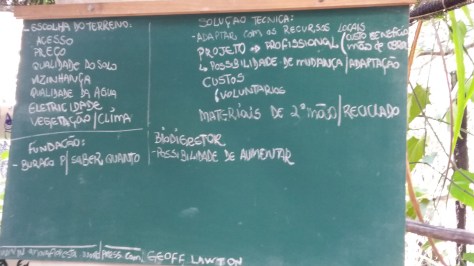 ESCOLHA DO TERRENO:
ACESSO
PREÇO
QUALIDADE DO SOLO
VIZINHANÇA
QUALIDADE DA ÁGUA
ELETRICIDADE
VEGETAÇÃO/CLIMA
FUNDAÇÃO:
- BURACO P/ SABER QUANTO
SOLUÇÃO TECNICA:
- ADAPTAR COM OS RECURSOS LOCAIS
PROJETO → PROFISSIONAL (CUSTO BENEFÍCIO
MÃO DE OBRA
↳ POSSIBILIDADE DE MUDANÇA/ADAPTAÇÃO
CUSTOS
(VOLUNTÁRIOS
MATERIAIS DE 2ª MÃO/RECICLADO
BIODIGETOR
- POSSIBILIDADE DE AUMENTAR
PRESS.COM/ GEOFF LAWTON